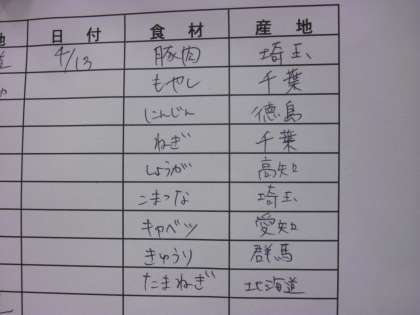 地 日付 食材 産地
4/13 豚肉 埼玉
もやし 千葉
にんじん 徳島
ねぎ 千葉
しょうが 高知
こまつな 埼玉
キャベツ 愛知
きゅうり 群馬
たまねぎ 北海道